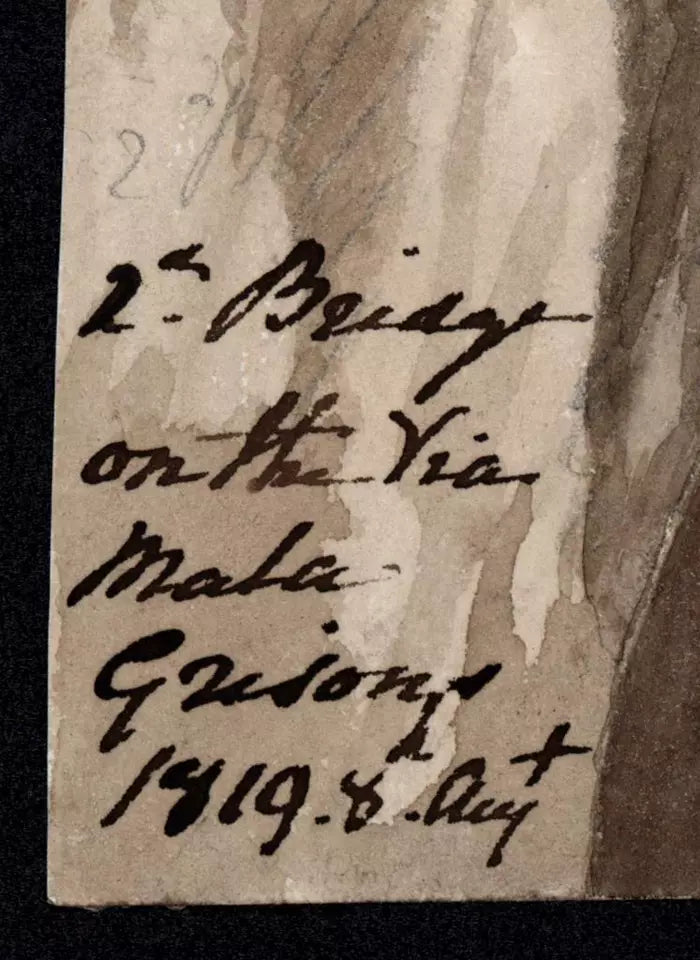 2
2d. Bridge
on the Via
Mala
Grisons
1819. 8th. Augt